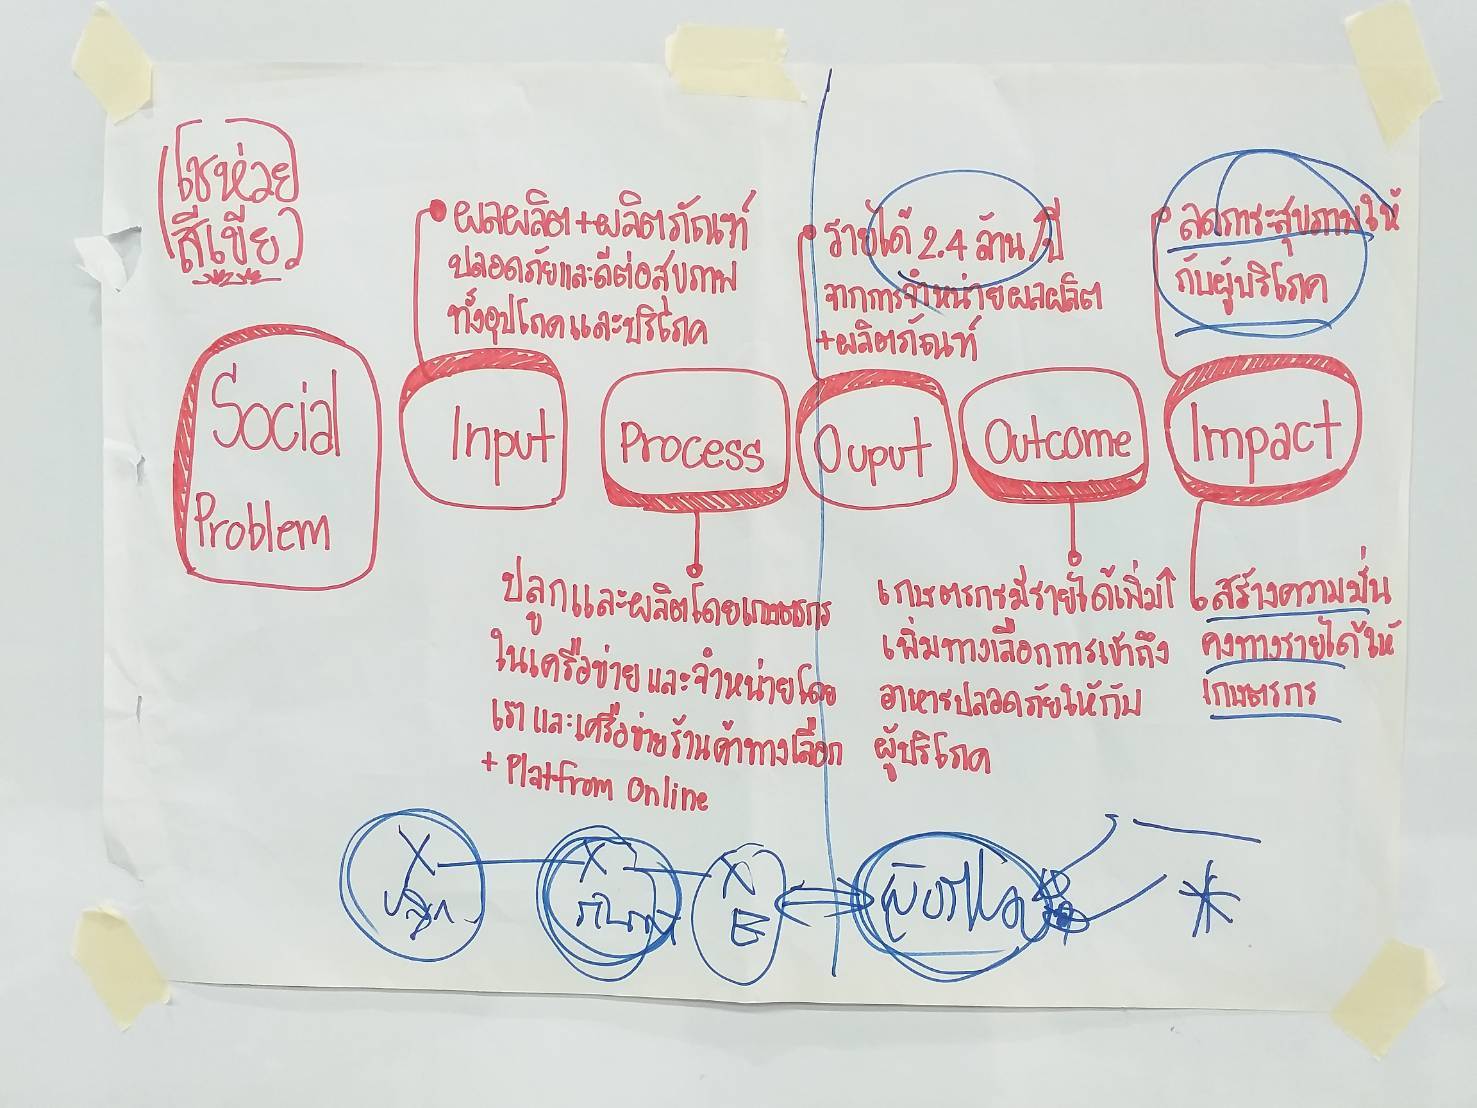 โชห่วย
สีเขียว
Social
Problem
Input
ผลผลิต+ผลิตภัณฑ์
ปลอดภัยและดีต่อสุขภาพ
ทั้งอุปโภคและบริโภค
Process
ปลูกและผลิตโดยเกษตรกร
ในเครือข่าย และจำหน่ายโดย
เรา และเครือข่ายร้านค้าทางเลือก
+ Platfrom Online
Ouput
รายได้ 2.4 ล้าน/ปี
จากการจำหน่ายผลผลิต
+ผลิตภัณฑ์
Outcome
เกษตรกรมีรายได้เพิ่ม↑
เพิ่มทางเลือกการเข้าถึง
อาหารปลอดภัยให้กับ
ผู้บริโภค
Impact
ลดภาระสุขภาพให้
กับผู้บริโภค
สร้างความมั่น
คงทางรายได้ให้
เกษตรกร
X X X